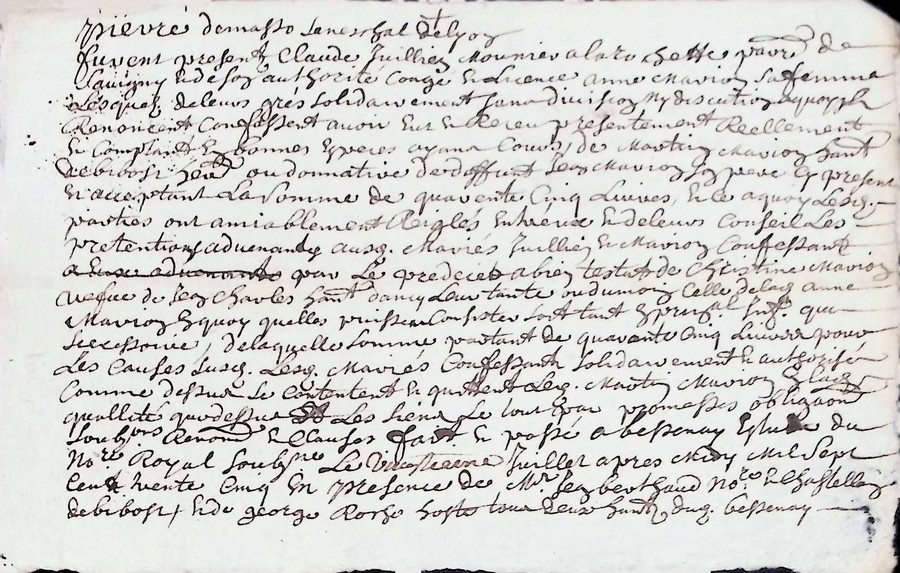 pierre demasso seneschal de Lyon
furent present Claude Juillien Mounier a la rochette parr de
Savigny & de son authorité Congé & Licence anne Marion sa femme
Lesquelz de leurs grés solidairement sans division Ny discution a quoy
Renoncent Confessent avoir eu & Receu presentement Reellement
& Comptant En bonnes Especes ayans Cours, de Martin Marion hant
debibost ou donnative de deffunt Jean Marion son pere Cy present
& acceptant La somme de quarente Cinq Livres, & le a quoy Lesq.
parties ont amiablement Reiglés entreux & deleurs Conseil Les
pretentions advenants ausq. Mariés Juillien & Marion Confessant
par Le predecés abien testat de Christine Marion
vefve de Jean Charles hant Leur tante ou du moin Celle delad anne
Marion & quoy quelles puissent Consister soit tant qua
accessoire, de laquelle somme partant de quarante Cinq Livres pour
Les Causes susd. Lesq. Mariés Confessant solidairement & authorisé
Comme dessus se Contentent & quittent Leq. Martin Marion
quallité que dessus & Les siens Le tout par promesses obligaons
soubmons Renons & Clauses fait & passé a bessenay Estude du
Nore Royal soubsne Le Juillet apres Midy Mil Sept
Cent trente Cinq En presence de Mr Jean berthaud Nore & Chastellain
debibost, & de george Roche hoste tous deux hants dud. bessenay